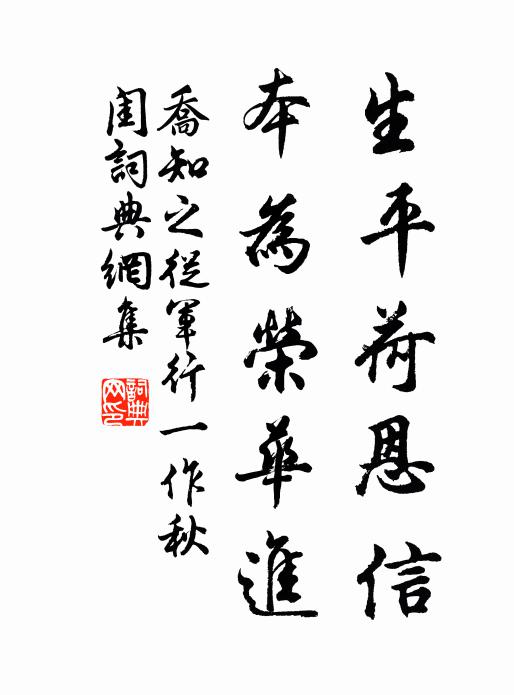 生平荷恩信
本為榮華進
喬知之從軍行一作秋
閨詞典網集
詞典網印